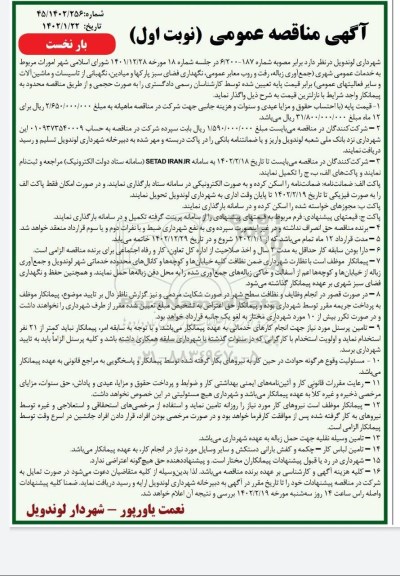 شماره:۴۵/۱۴۰۲/۲۵۶
تاریخ: ۱۴۰۲/۱/۲۲
آگهی مناقصه عمومی (نوبت اول)
بار نخست
شهرداری لوندویل درنظر دارد برابر مصوبه شماره ۶/۲۰۰۰۱۸۷ در جلسه شماره ۱۸ مورخه ۱۴۰۱/۱۲/۲۸ شورای اسلامی شهر امورات مربوط
به خدمات عمومی شهری (جمع‌آوری زباله، رفت و روب معابر عمومی، نگهداری فضای سبز پارکها و میادین، نگهبانی از تاسیسات و ماشین‌آلات
و سایر فعالیتهای عمومی) برابر قیمت پایه تعیین شده توسط کارشناس رسمی دادگستری را به صورت حجمی و از طریق مناقصه محدود به
پیمانکار واجد شرایط با نازلترین قیمت به شرح ذیل واگذار نماید.
۱- قیمت پایه (با احتساب حقوق و مزایا عیدی و سنوات و هزینه جانبی جهت شرکت در مناقصه ماهیانه به مبلغ ۲/۶۵۰/۰۰۰/۰۰۰ ریال برای
۱۲ ماه مبلغ ۳۱/۸۰۰/۰۰۰/۰۰۰ ریال می‌باشد.
۲- شرکت‌کنندگان در مناقصه می‌بایست مبلغ ۱/۵۹۰/۰۰۰/۰۰۰ ریال بابت سپرده شرکت در مناقصه به حساب ۰۱۰۹۳۷۳۵۴۰۰۹ این
شهرداری نزد بانک ملی شعبه لوندویل واریز و یا ضمانتنامه بانکی را در پاکت دربسته و مهر شده به دبیرخانه شهرداری لوندویل تسلیم و رسید
دریافت نمایند.
۳- شرکت‌کنندگان در مناقصه می‌بایست تا تاریخ ۱۴۰۲/۲/۱۸ به سامانه SETAD IRAN.IR (سامانه ستاد دولت الکترونیک) مراجعه و ثبت‌نام
نمایند و پاکت‌های الف، ب، ج را تکمیل نمایند.
پاکت الف: ضمانتنامه: ضمانتنامه را اسکن کرده و به صورت الکترونیکی در سامانه ستاد بارگذاری نمایند. و در صورت امکان فقط پاکت الف
را به صورت فیزیکی تا تاریخ ۱۴۰۲/۲/۱۹ تا پایان وقت اداری به شهرداری لوندویل تحویل نمایند.
پاکت ب: مجوزهای خواسته شده را اسکن کرده و در سامانه بارگذاری نمایند.
پاکت ج: قیمتهای پیشنهادی، فرم مربوط به قیمتهای پیشنهادی را از سامانه پرینت گرفته تکمیل و در سامانه بارگذاری نمایند.
۴- برنده مناقصه حق انصراف نداشته و در غیر اینصورت سپرده وی به نفع شهرداری ضبط و با نفرات دوم و یا سوم قرارداد منعقد خواهد شد.
۵- مدت قرارداد ۱۲ ماه تمام می‌باشد که از ۱۴۰۲/۱/۱ شروع و در تاریخ ۱۴۰۲/۱۲/۲۹ خاتمه می‌یابد.
۶- دارا بودن سابقه کار حداقل به مدت ۳ سال و اخذ صلاحیت از اداره کل تعاون، کار و رفاه اجتماعی برای برنده مناقصه الزامی است.
۷- پیمانکار موظف است با نظارت شهرداری ضمن نظافت کلیه خیابان‌ها و کوچه‌ها و کانال‌های محدوده خدماتی شهر لوندویل و جمع‌آوری
زباله از خیابان‌ها و کوچه‌ها اعم از آسفالت و خاکی زباله‌های جمع‌آوری شده را به محل دفن زباله‌ها حمل نمایند. و همچنین حفظ و نگهداری
فضای سبز شهری بر عهده پیمانکار گذاشته می‌شود.
۸- مدت در صورت قصور در انجام وظایف و نظافت سطح شهر در صورت شکایت مردمی و نیز گزارش ناظر دال بر تایید موضوع، پیمانکار موظف
به پرداخت جریمه مقرر توسط شهرداری بوده و پیمانکار حق اعتراض به تشخیص مبلغ تعیین شده مقرر از طرف شهرداری را نخواهند داشت
و در صورت تکرر بیش از ۱۰ مورد شهرداری مختار به لغو یک جانبه قرارداد خواهد بود.
۹- تامین پرسنل مورد نیاز جهت انجام کارهای خدماتی به عهده پیمانکار می‌باشد و با توجه به سابقه امر، پیمانکار نباید کمتر از ۲۱ نفر
استخدام نماید و اولویت استخدام با کارگرانی که در سنوات گذشته با شهرداری سابقه همکاری داشته باشد و کلیه پرسنل الزاما باید به تایید
شهرداری برسد.
۱۰- مسئولیت وقوع هرگونه حوادث در حین کار به نیروهای بکار گرفته شده توسط پیمانکار و پاسخگویی به مراجع قانونی به عهده پیمانکار
می‌باشد.
۱۱- رعایت مقررات قانونی کار و آئین‌نامه‌های ایمنی بهداشتی کار و ضوابط و پرداخت حقوق و مزایا، عیدی و پاداش، حق سنوات، مزایای
مرخصی ذخیره و غیره کلا به عهده پیمانکار می‌باشد و شهرداری هیچ مسئولیتی در این خصوص نخواهد داشت.
۱۲- پیمانکار موظف است نیروهای کار مورد نیاز را روزانه تامین نماید و استفاده از مرخصی‌های استحقاقی و استعلاجی و غیره توسط
نیروهای به کار گرفته شده پس از موافقت کارفرما خواهد بود و در صورت مرخصی بودن افراد، قرار دادن افراد جانشین در اسرع وقت توسط
پیمانکار الزامی است.
۱۳- تامین وسیله نقلیه جهت حمل زباله به عهده شهرداری می‌باشد.
۱۴- تامین لباس کار – چکمه و کفش بارانی دستکش و سایر وسایل مورد نیاز در انجام کار، به عهده پیمانکار می‌باشد.
۱۵- شهرداری در رد یا قبول پیشنهادات پیمانکاران مختار است. و پیشنهاددهنده حق هیچگونه اعتراضی ندارد.
۱۶- کلیه هزینه آگهی و کارشناسی بر عهده برنده مناقصه می‌باشد. لذا بدین‌وسیله از کلیه متقاضیان دعوت می‌شود در صورت تمایل به
شرکت در مناقصه پیشنهادات خود را تا تاریخ مقرر در آگهی به دبیرخانه شهرداری لوندویل ارایه و رسید دریافت نماید. ضمنا کلیه پیشنهادات
واصله راس ساعت ۱۴ روز سه‌شنبه مورخه ۱۴۰۲/۲/۱۹ بررسی و نتیجه آن اعلام خواهد شد.
نعمت یاورپور – شهردار لوندویل